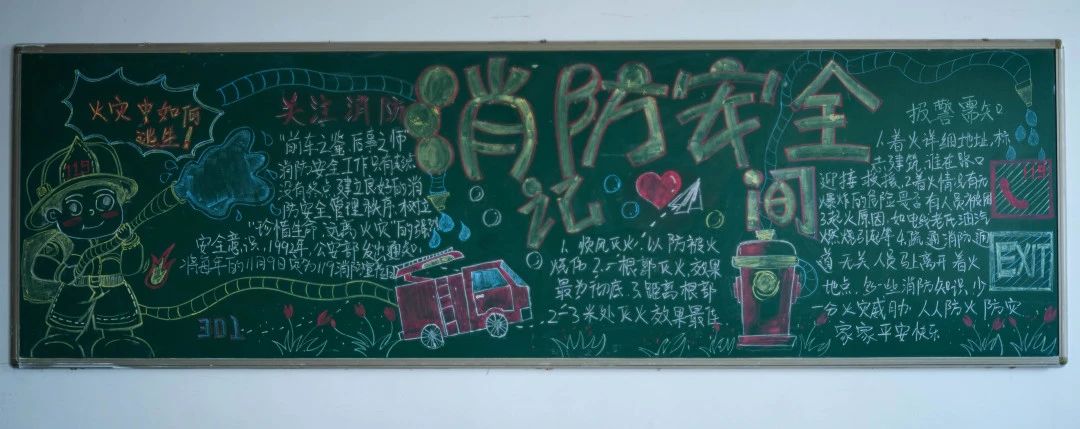 火灾中如何
逃生！
119
关注消防
"前车之鉴 后事之师"
消防安全工作只有起点
没有终点 建立良好的消
防安全管理秩序 树立
"珍惜生命 远离火灾"的
安全意识。1992年，公安部发出通知，
将每年的11月9日定为119消防宣传日
301
消防安全
记 间
1. 顺风灭火，以防被火
烧伤 2. 根部灭火效果
最为彻底 3. 距离根部
2—3米处灭火效果最佳
报警需知
1. 着火详细地址，标
志建筑，谁在路口
迎接救援，2. 着火情况有无
爆炸的危险 是否有人员被困
3. 火原因 如电线老化 油汽
燃烧引起等 4. 疏通消防通
道 无关人员马上离开着火
地点，多一些消防知识，少
一分火灾威胁，人人防火防灾
家家平安快乐
119
EXIT